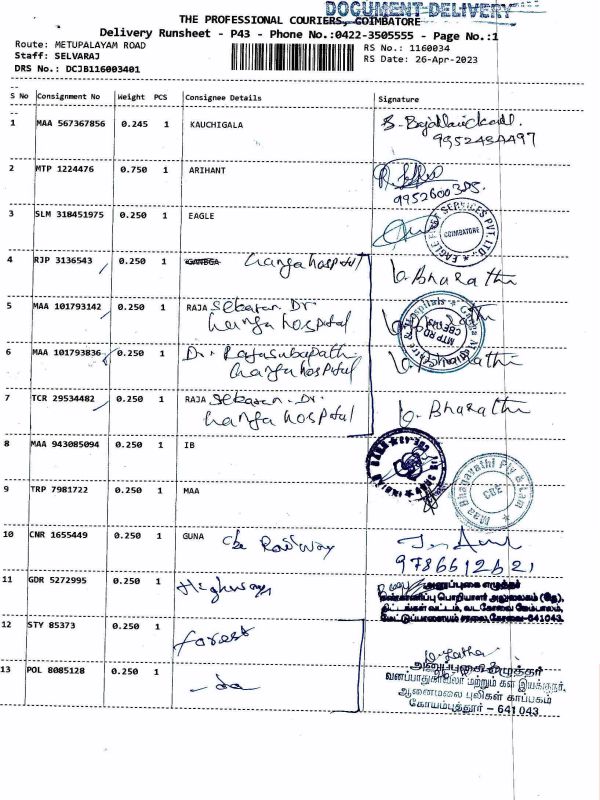 DOCUMENT-DELIVERY
THE PROFESSIONAL COURIERS, COIMBATORE
Delivery Runsheet - P43 - Phone No.:0422-3505555 - Page No.:1
Route: METUPALAYAM ROAD
RS No.: 1160034
Staff: SELVARAJ
RS Date: 26-Apr-2023
DRS No.: DCJB116003401
S No Consignment No Weight PCS Consignee Details Signature
1 MAA 567367856 0.245 1 KAUCHIGALA
2 MTP 1224476 0.750 1 ARIHANT
9952600385.
3 SLM 318451975 0.250 1 EAGLE
EAGLE FLEET SERVICES PVT. LTD.
COIMBATORE
4 RJP 3136543 0.250 1 GANGA Ganga hospital
G. Bharathi
5 MAA 101793142 0.250 1 RAJA Sekaran. Dr.
Ganga hospital
MTP RD
6 MAA 101793836 0.250 1 Dr. Rajasabapathi
Ganga hospital
G. Bharathi
7 TCR 29534482 0.250 1 RAJA Sekaran. Dr.
Ganga hospital
G. Bharathi
8 MAA 943085094 0.250 1 IB
INDIAN BANK
9 TRP 7981722 0.250 1 MAA
Maa Bhagavathi Ply & Lam
CBE
10 CNR 1655449 0.250 1 GUNA cbe Railway
9786612621
11 GDR 5272995 0.250 1 Highways
கண்காணிப்பு பொறியாளர் அலுவலகம் (நெ),
திட்டங்கள் வட்டம், வடகோவை மேம்பாலம்,
மேட்டுப்பாளையம் சாலை, கோவை-641043.
12 STY 85373 0.250 1 forest
D. Latha
13 POL 8085128 0.250 1 - do
வனப்பாதுகாவலர் மற்றும் கள இயக்குநர்,
ஆனைமலை புலிகள் காப்பகம்
கோயம்புத்தூர் - 641 043